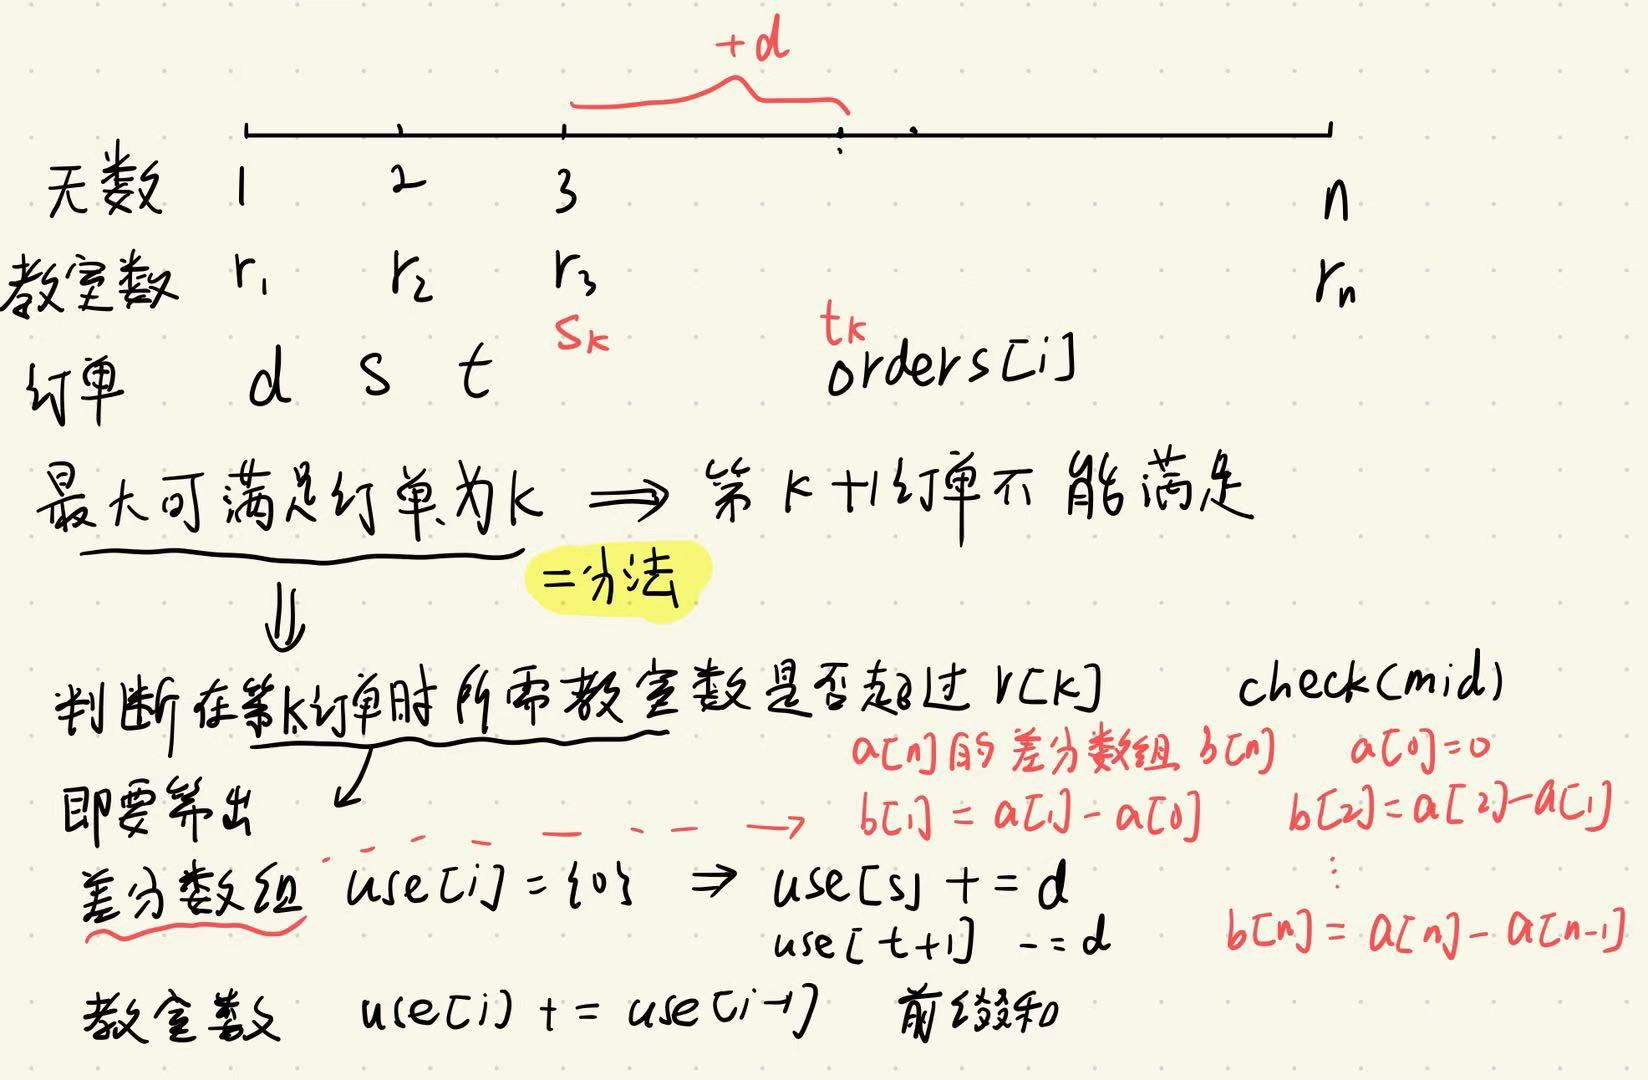 +d
天数 1 2 3 n
教室数 r₁ r₂ r₃ rₙ
sₖ tₖ
订单 d s t orders[i]
最大可满足订单为k ⟹ 第k+1订单不能满足
二分法
⇓
判断在第k订单时所需教室数是否超过r[k] check(mid)
a[n]的差分数组b[n] a[0]=0
即要算出
b[1]=a[1]-a[0] b[2]=a[2]-a[1]
⋮
差分数组 use[i]={0} ⇒ use[s]+=d
use[t+1] -=d b[n]=a[n]-a[n-1]
教室数 use[i]+=use[i-1] 前缀和